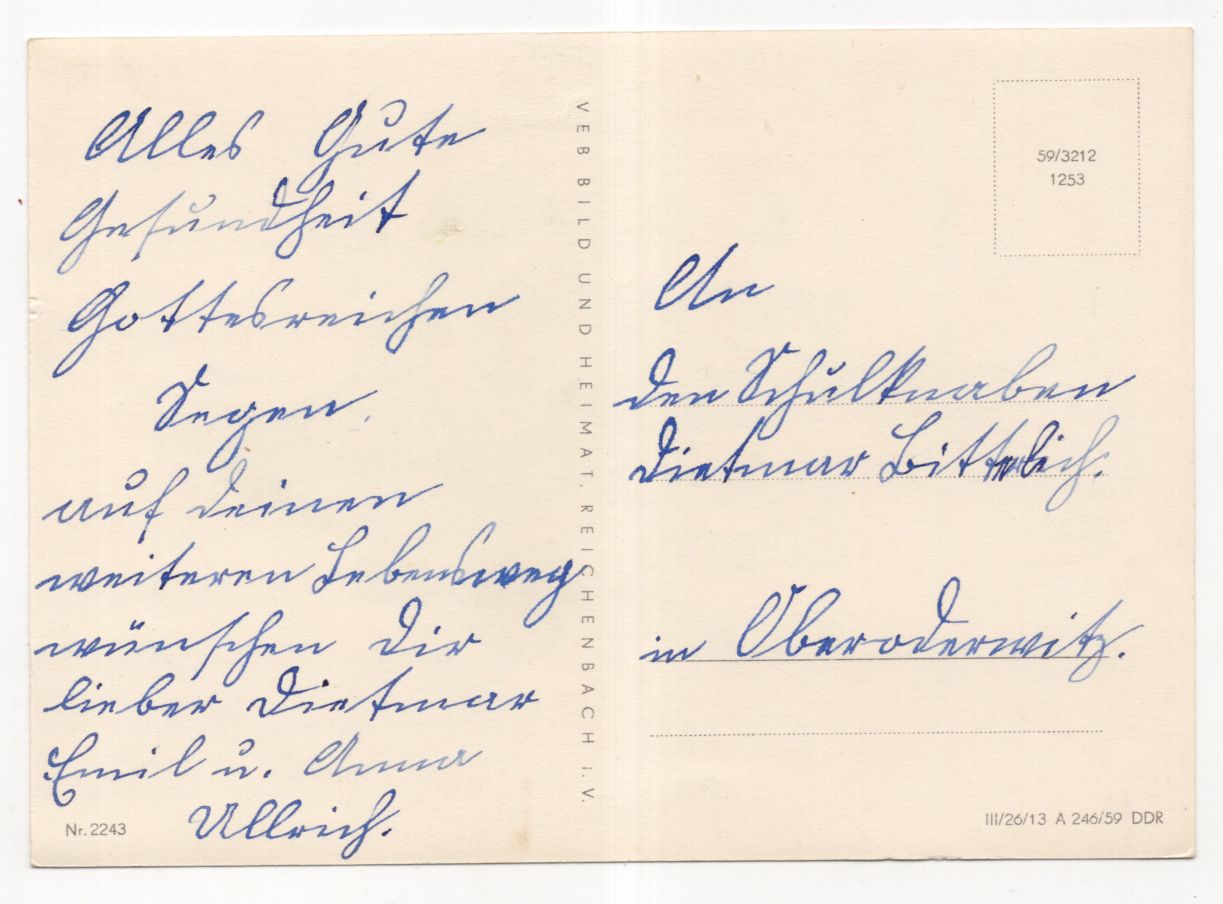 Alles Gute
Gesundheit
Gottesreichen
Segen.
auf deinen
weiteren Lebensweg
wünschen Dir
lieber Dietmar
Emil u. Anna
Ullrich.
Nr. 2243
VEB BILD UND HEIMAT, REICHENBACH I.V.
59/3212
1253
An
den Schulknaben
Dietmar Bitterlich.
in Oberoderwitz.
III/26/13 A 246/59 DDR